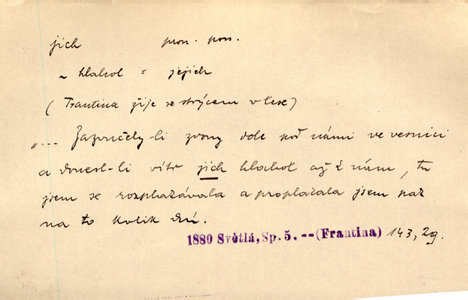 jich pron. pon.
~ hlahol = jejich
(Frantina žije se strýcem v lese)
"... Zazvučely-li zvony dole pod námi ve vesnici
a donesl-li vítr jich hlahol až k nám, tu
jsem se rozplakávala a proplakala jsem pak
na to kolik dní.
1880 Světlá, Sp. 5. -- (Frantina) 143, 29.